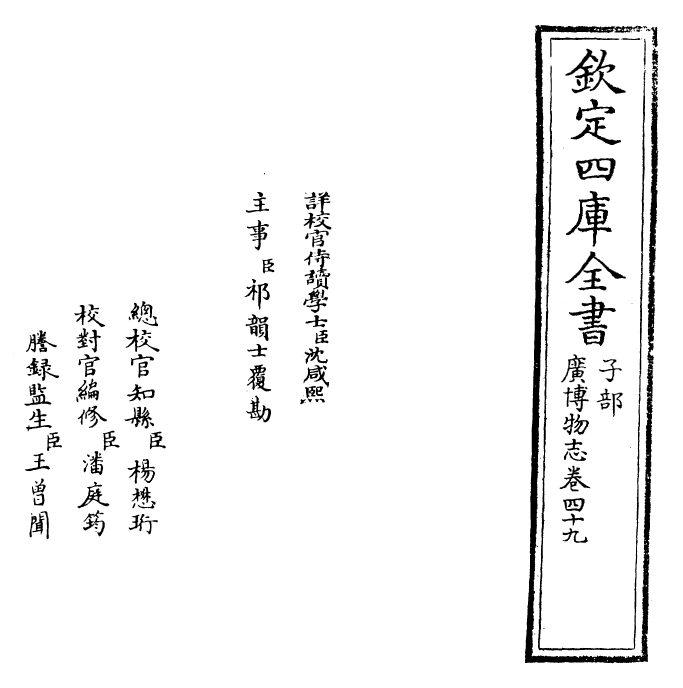 欽定四庫全書
子部
廣博物志卷四十九
詳校官侍讀學士臣沈咸熙
主事臣祁韻士覆勘
總校官知縣臣楊懋珩
校對官編修臣潘庭筠
謄録監生臣王曾聞